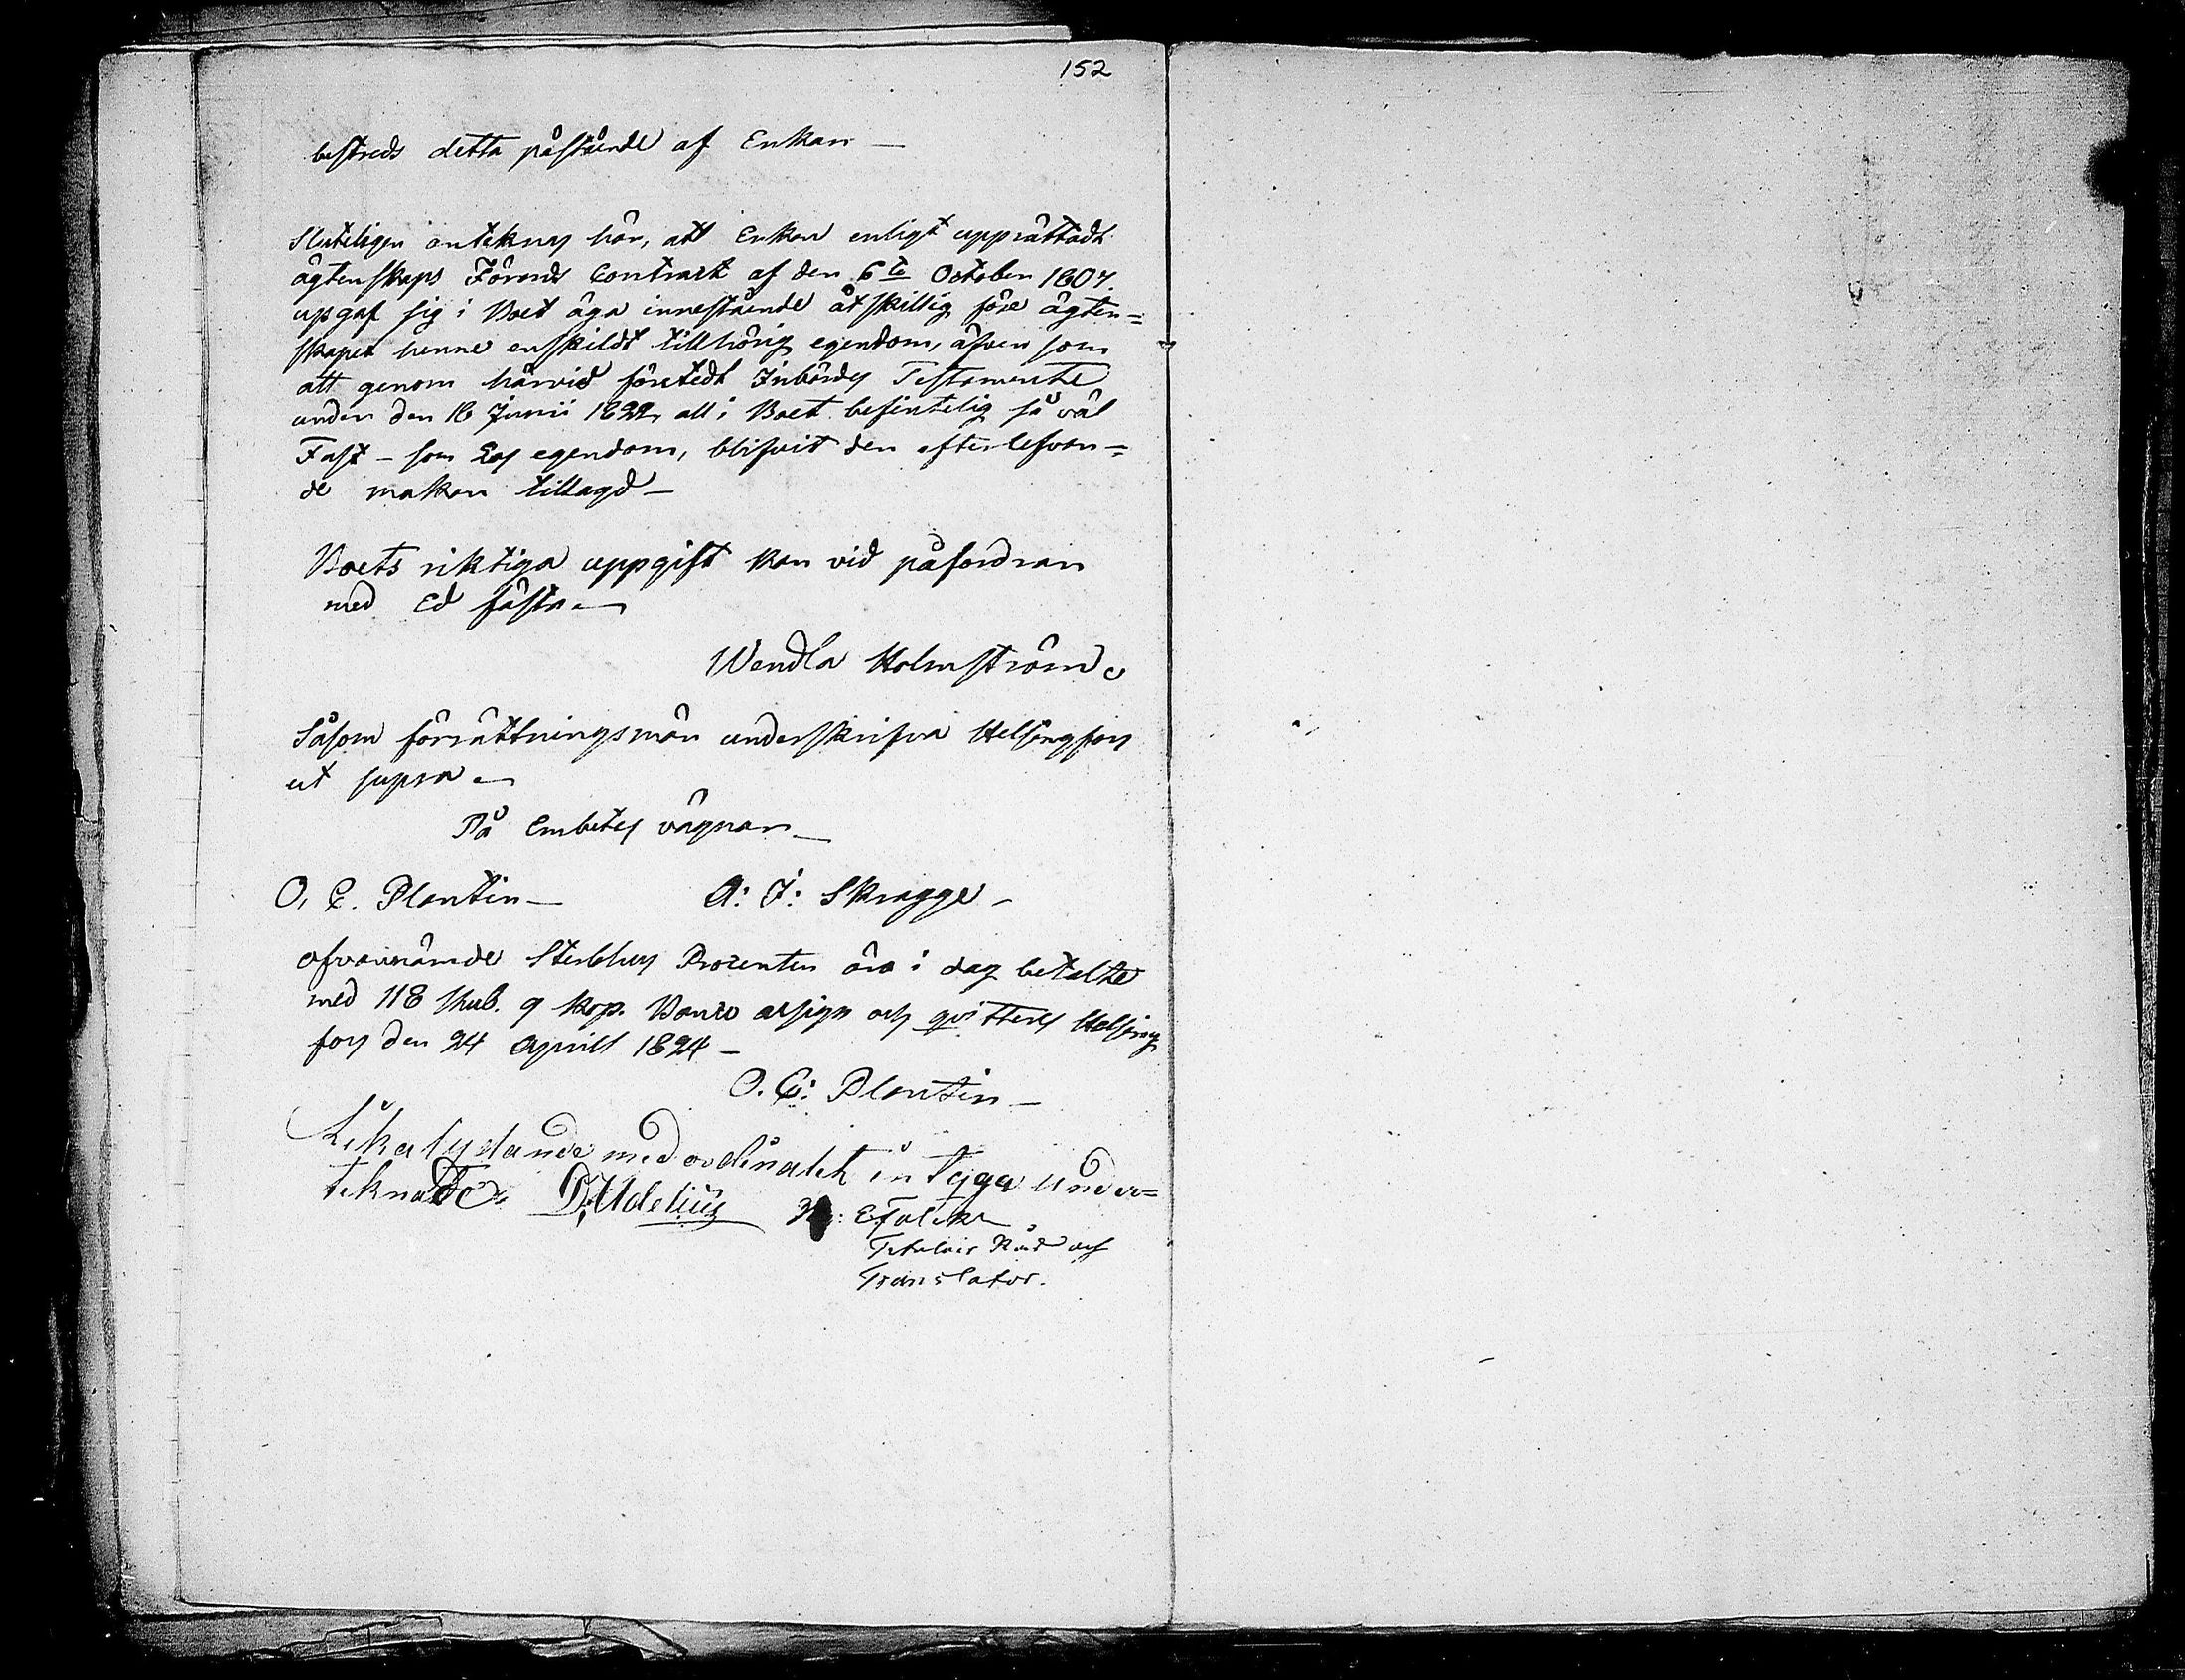 152
bestreds detta påstående af Enkan —
Sluteligen anteknas här, att Enkan enligt upprättadt
ägtenskaps Förords Contract af den 6te October 1807.
upgaf sig i Boet äga innestående åtskillig före ägten=
skapet henne enskildt tillhörig egendom, äfven som
att genom härvid företedt Inbördes Testamente
under den 18 Junii 1822, all i Boet befintelig så väl
Fast - som Lös egendom, blifvit den efterlefvan=
de makan tillagd —
Boets riktiga uppgift kan vid påfordran
med Ed fästas —
Wendla Holmström
Såsom förrättningsmän underskrifva Helsingfors
ut supra —
På Embetes vägnar —
O. C. Plantin — A: J: Skragge -
ofvannämde Sterbhus Procenter äro i dag betalte
med 118 Rub. 9 kop. Banco assign och qvitteras Helsing
fors den 24 Aprill 1824 —
O. C: Plantin —
Lika lydande med ordinalet intyga under=
teknade. Udelius
E Falck
Titulair Råd och
Translator.